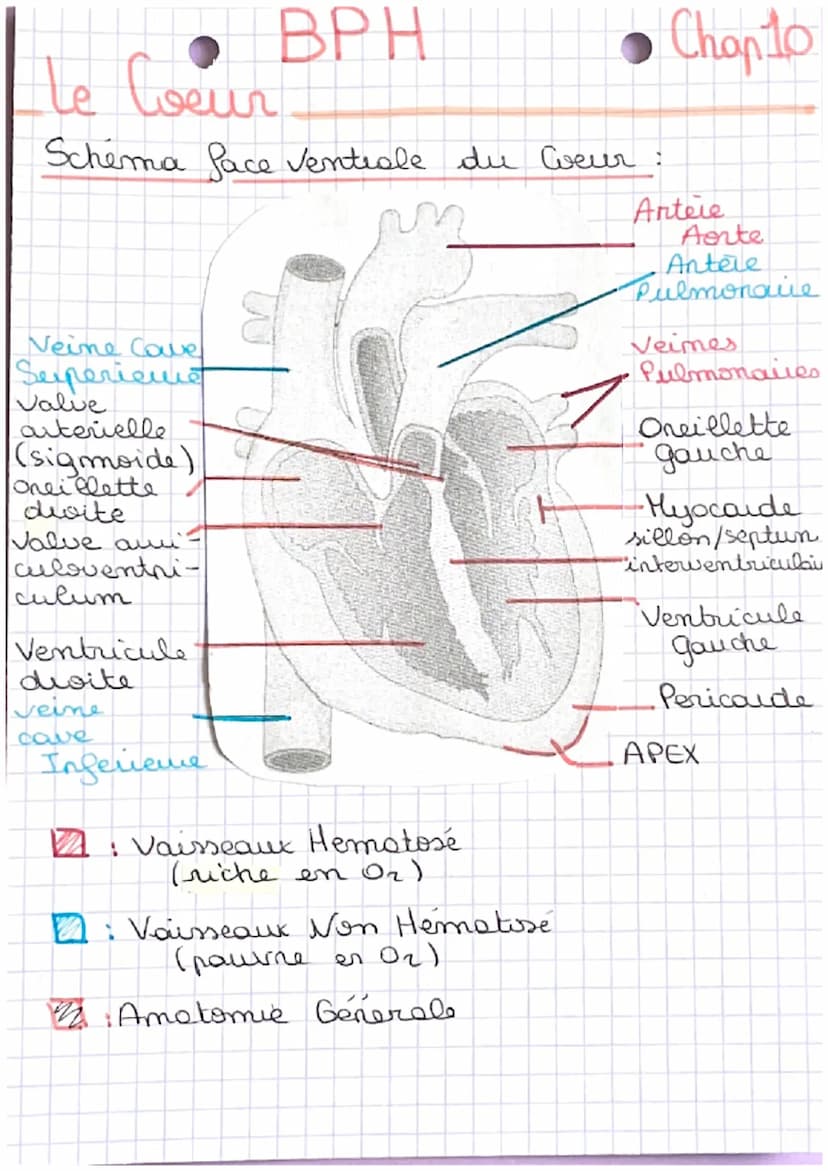 BPH
Chap 10
Le Coeur
Schéma face ventrale du Coeur :
Artère
Aorte
Artère
Pulmonaire
Veines
Pulmonaires
Oreillette
gauche
Myocarde
sillon/septum
interventriculair
Ventricule
gauche
Pericarde
APEX
Veine Cave
Superieure
Valve
arterielle
(sigmoïde)
Oreillette
droite
Valve auri-
culoventri-
culum
Ventricule
droite
Veine
cave
Inferieure
: Vaisseaux Hematosé
(riche en O2)
: Vaisseaux Non Hématosé
(pauvre en O2)
: Anatomie Générale